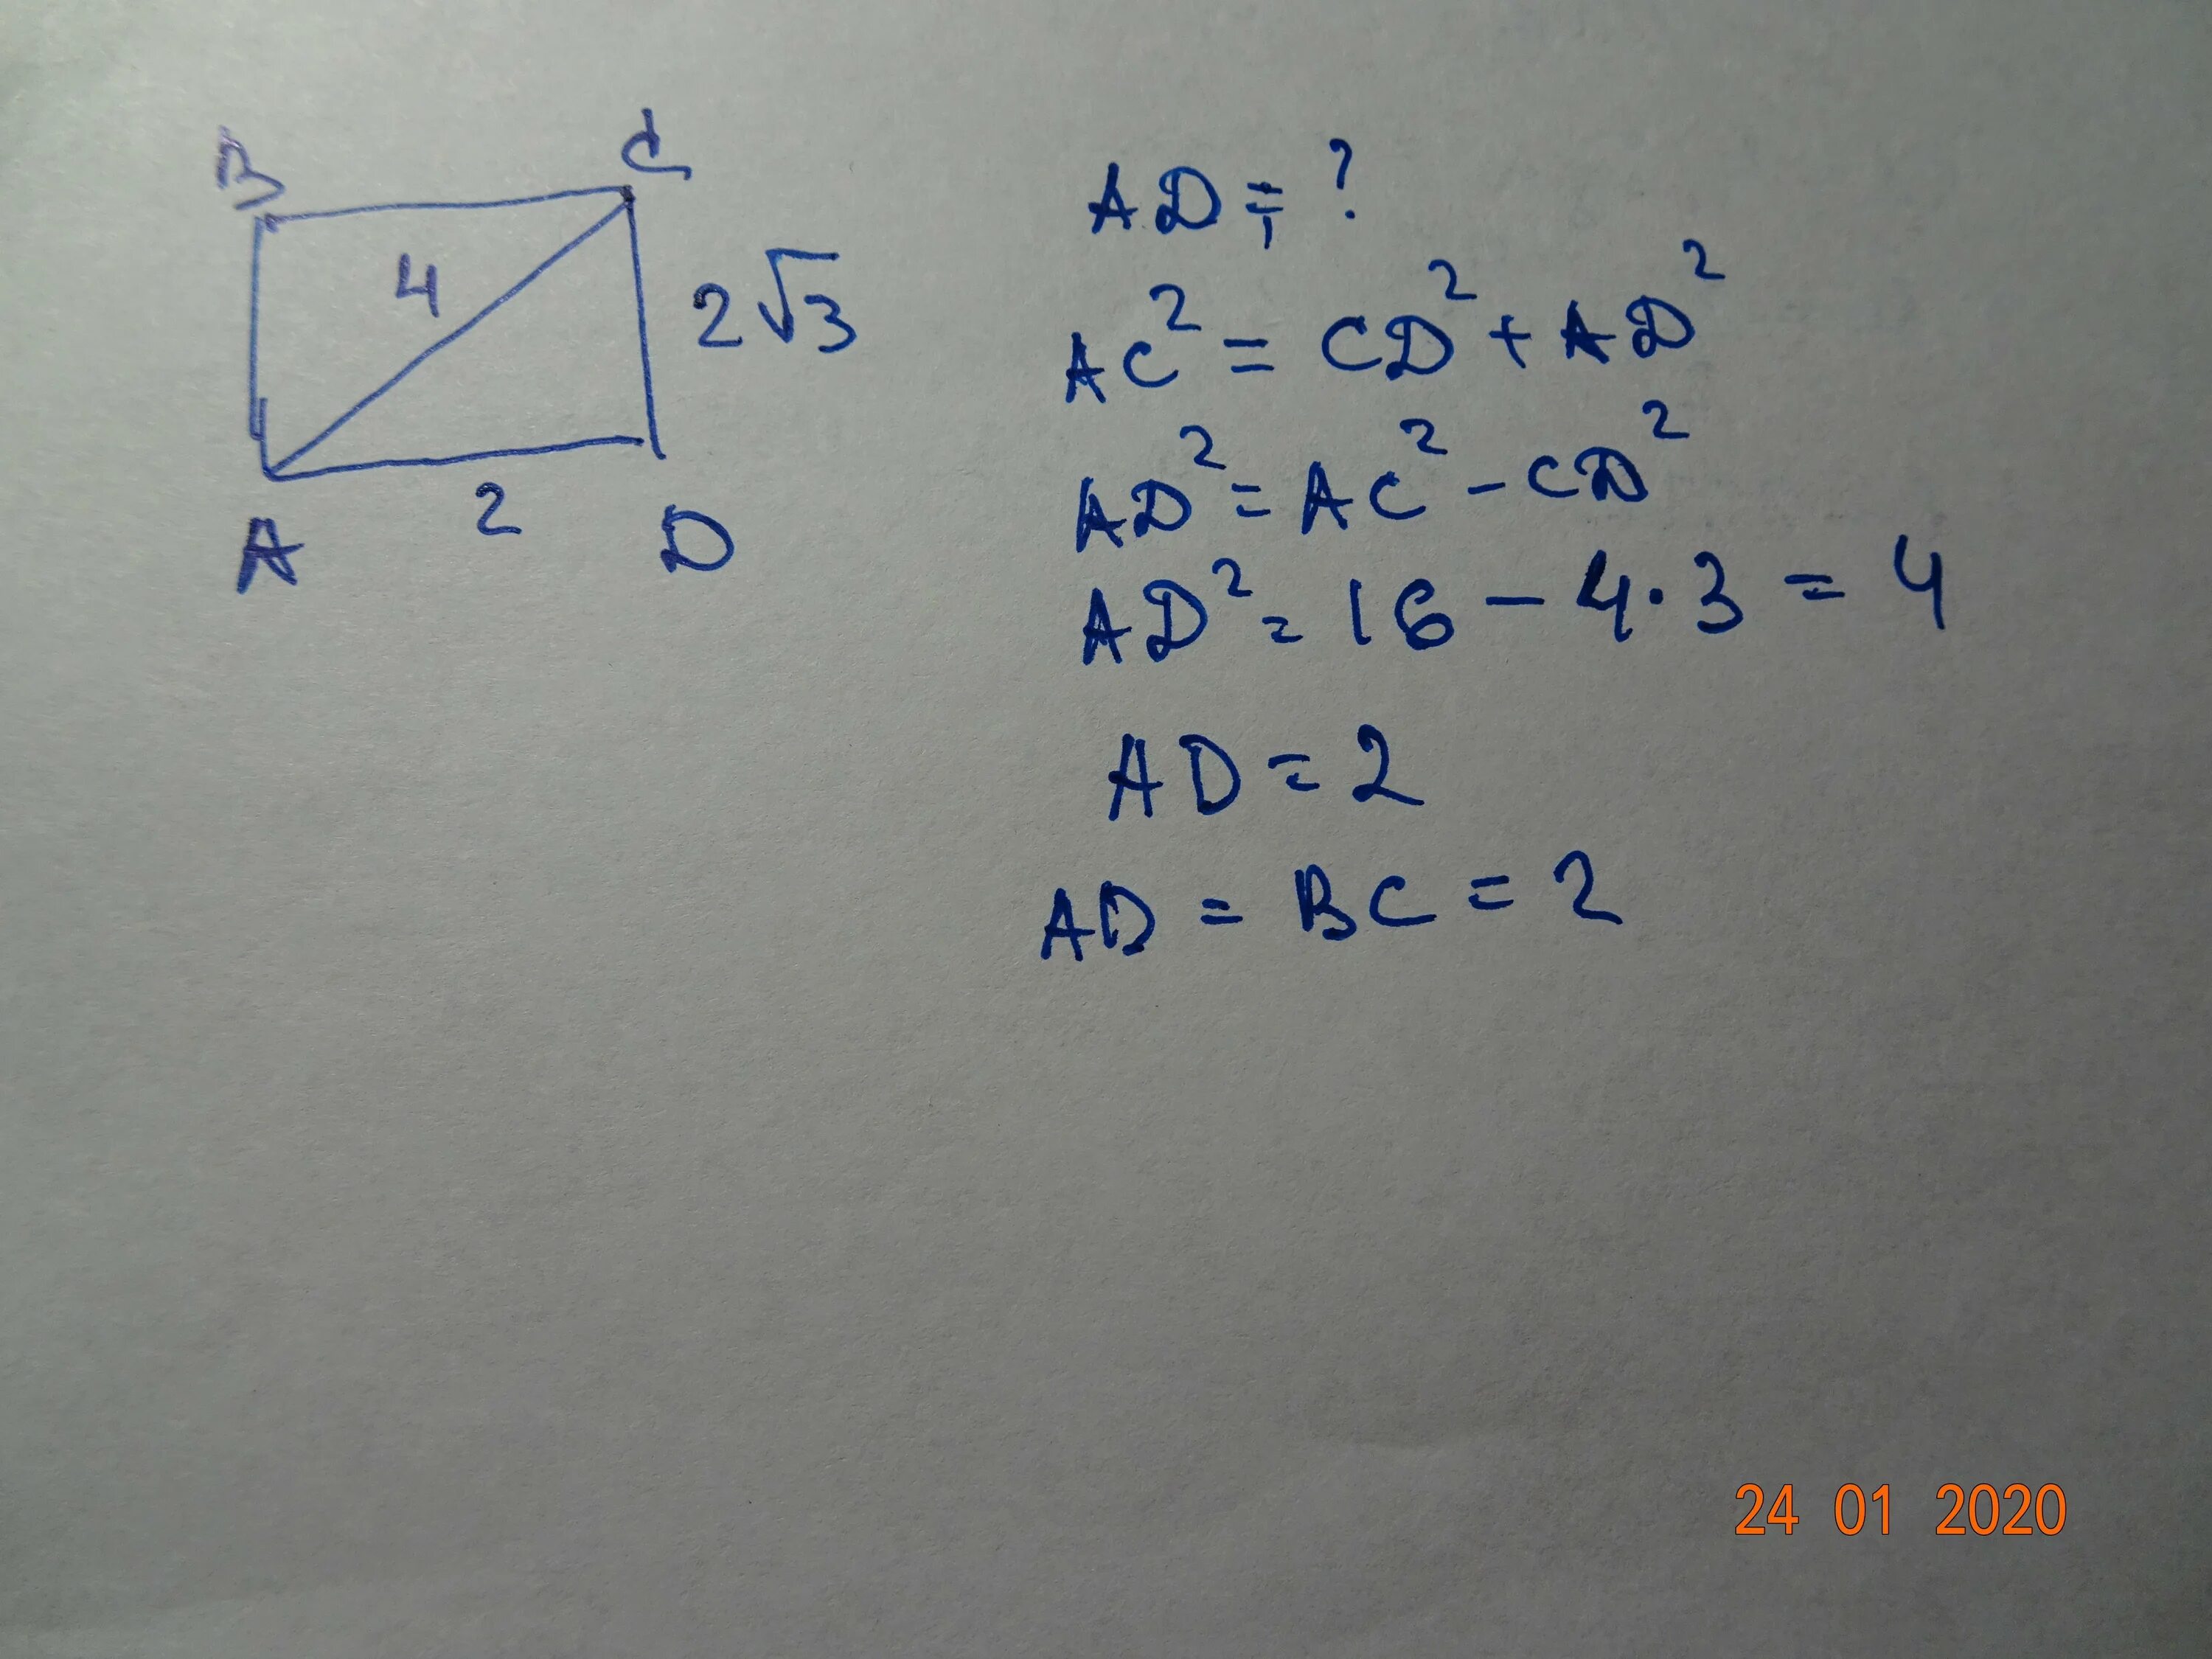 B
C
4
2√3
2
A
D
AD = ?
AC² = CD² + AD²
AD² = AC² - CD²
AD² = 16 - 4·3 = 4
AD = 2
AD = BC = 2
24 01 2020